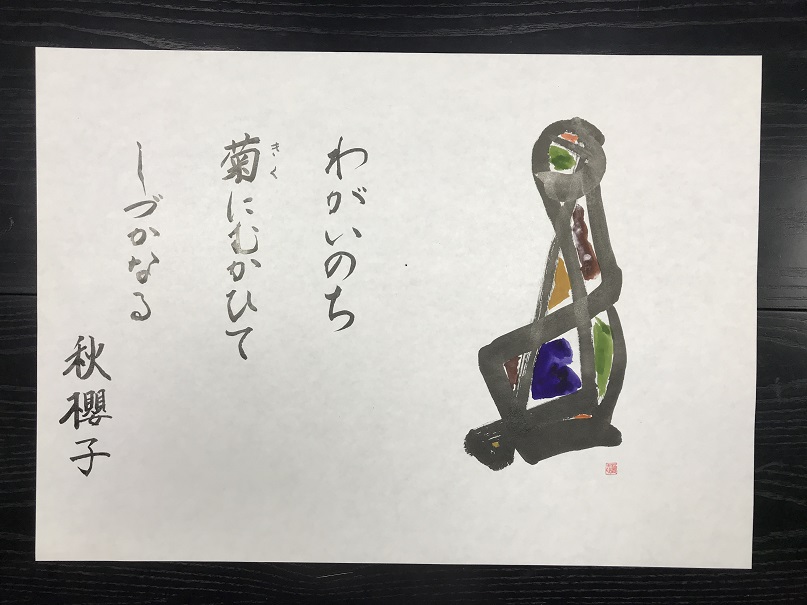 わがいのち
菊にむかひて
きく
しづかなる
秋櫻子